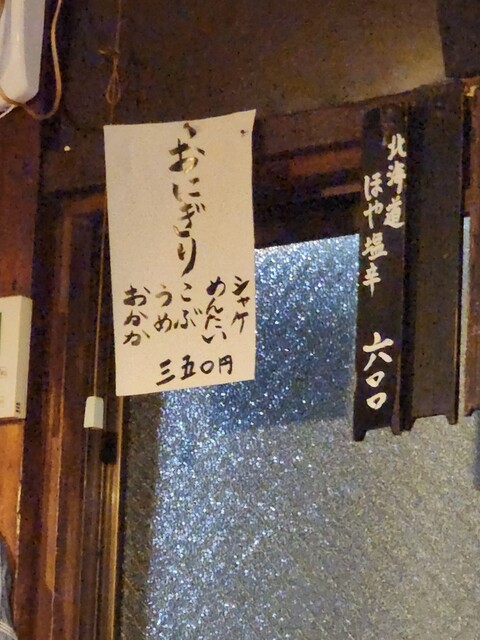 北海道
ほや塩辛 六〇〇
おにぎり
シャケ
めんたい
こぶ
うめ
おかか
三五〇円